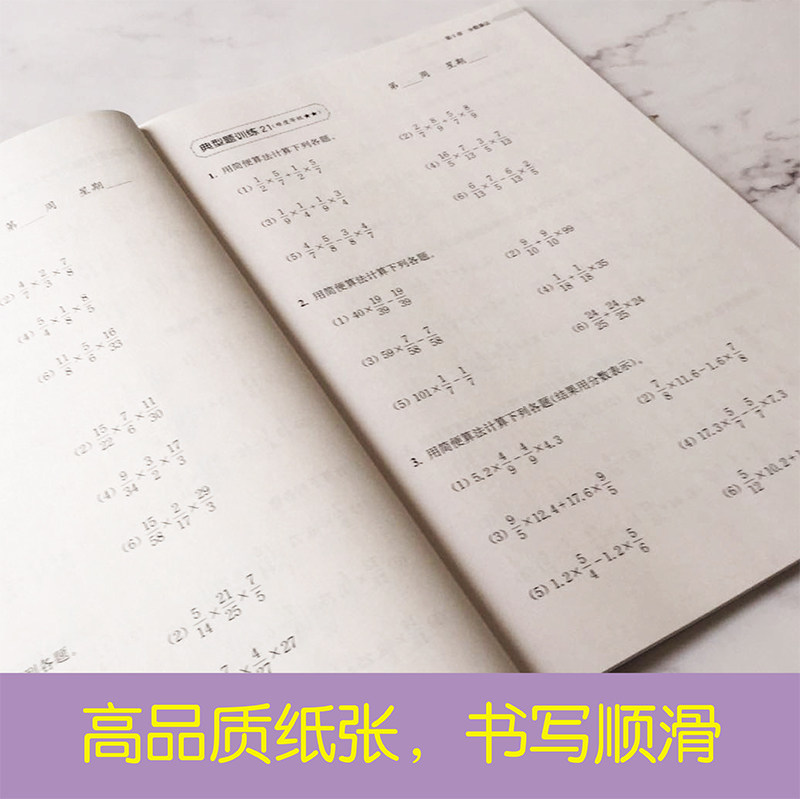 第___周 星期___
(2) 4/7×2/3×7/8
(4) 5/4×1/8×8/5
(6) 11/8×5/6×16/33
(2) 15/22×7/6×11/30
(4) 9/34×3/2×17/3
(6) 15/58×2/17×29/3
(2) 5/14×21/25×7/5
×4/27×27
列各题。
第___周 星期___
典型题训练21(难度等级★★)
1. 用简便算法计算下列各题。
(1) 1/2×5/7+1/2×5/7
(2) 2/7×8/9+5/7×8/9
(3) 1/9×1/4+1/9×3/4
(4) 16/5×7/13-3/5×7/13
(5) 4/7×5/8-3/8×4/7
(6) 6/13×7/5-6/13×2/5
2. 用简便算法计算下列各题。
(1) 40×19/39-19/39
(2) 9/10+9/10×99
(3) 59×7/58-7/58
(4) 1/18+1/18×35
(5) 101×1/7-1/7
(6) 24/25+24/25×24
3. 用简便算法计算下列各题(结果用分数表示)。
(1) 5.2×4/9-4/9×4.3
(2) 7/8×11.6-1.6×7/8
(3) 9/5×12.4+17.6×9/5
(4) 17.3×5/7-5/7×7.3
(5) 1.2×5/4-1.2×5/6
(6) 5/12×10.2+
高品质纸张，书写顺滑